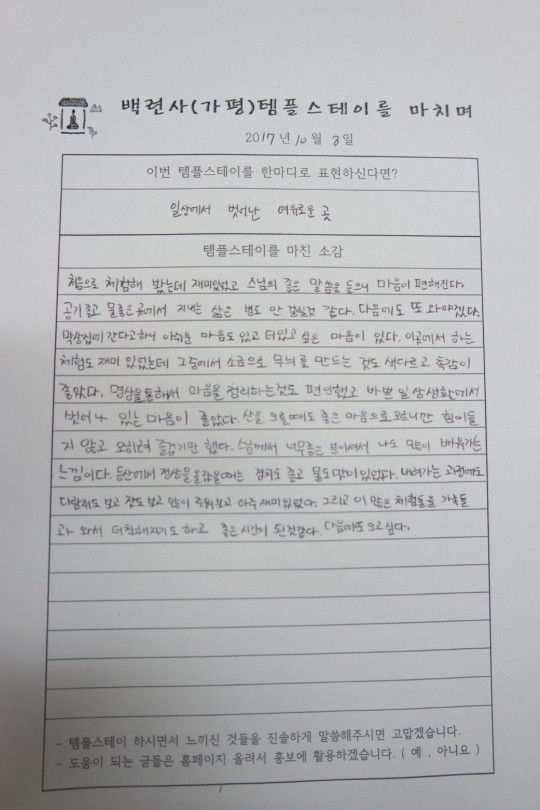 백련사(가평)템플스테이를 마치며
2017년 10월 3일
이번 템플스테이를 한마디로 표현하신다면?
일상에서 벗어난 여유로운 곳
템플스테이를 마친 소감
처음으로 체험해 봤는데 재미있었고 스님의 좋은 말씀을 들으니 마음이 편해진다.
공기좋고 물좋은곳에서 지내는 삶은 병도 안 걸릴것 같다. 다음에도 또 와야겠다.
막상집에 간다고하니 아쉬운 마음도 있고 더있고 싶은 마음이 있다. 이곳에서 하는
체험도 재미 있었는데 그중에서 소금으로 무늬를 만드는 것도 색다르고 촉감이
좋았다. 명상을통해서 마음을 정리하는것도 편안했고 바쁜 일상생활에서
벗어나 있는 마음이 좋았다. 산을 오를때도 좋은 마음으로 오르니깐 힘이들
지 않고 오히려 즐겁기만 했다. 스님께서 너무좋은 보이셔서 나도 많이 배워가는
느낌이다. 등산에서 정상을올랐을때는 경치도 좋고 물도맛이있었다. 내려가는 과정에도
다람쥐도 보고 잣도 보고 많이 주워보고 아주재미있었다. 그리고 이 많은 체험들을 가족들
과 와서 더친해지기도 하고 좋은시간이 된것같다. 다음에도 오고싶다.
- 템플스테이 하시면서 느끼신 것들을 진솔하게 말씀해주시면 고맙겠습니다.
- 도움이 되는 글들은 홈페이지 올려서 홍보에 활용하겠습니다. ( 예 , 아니요 )